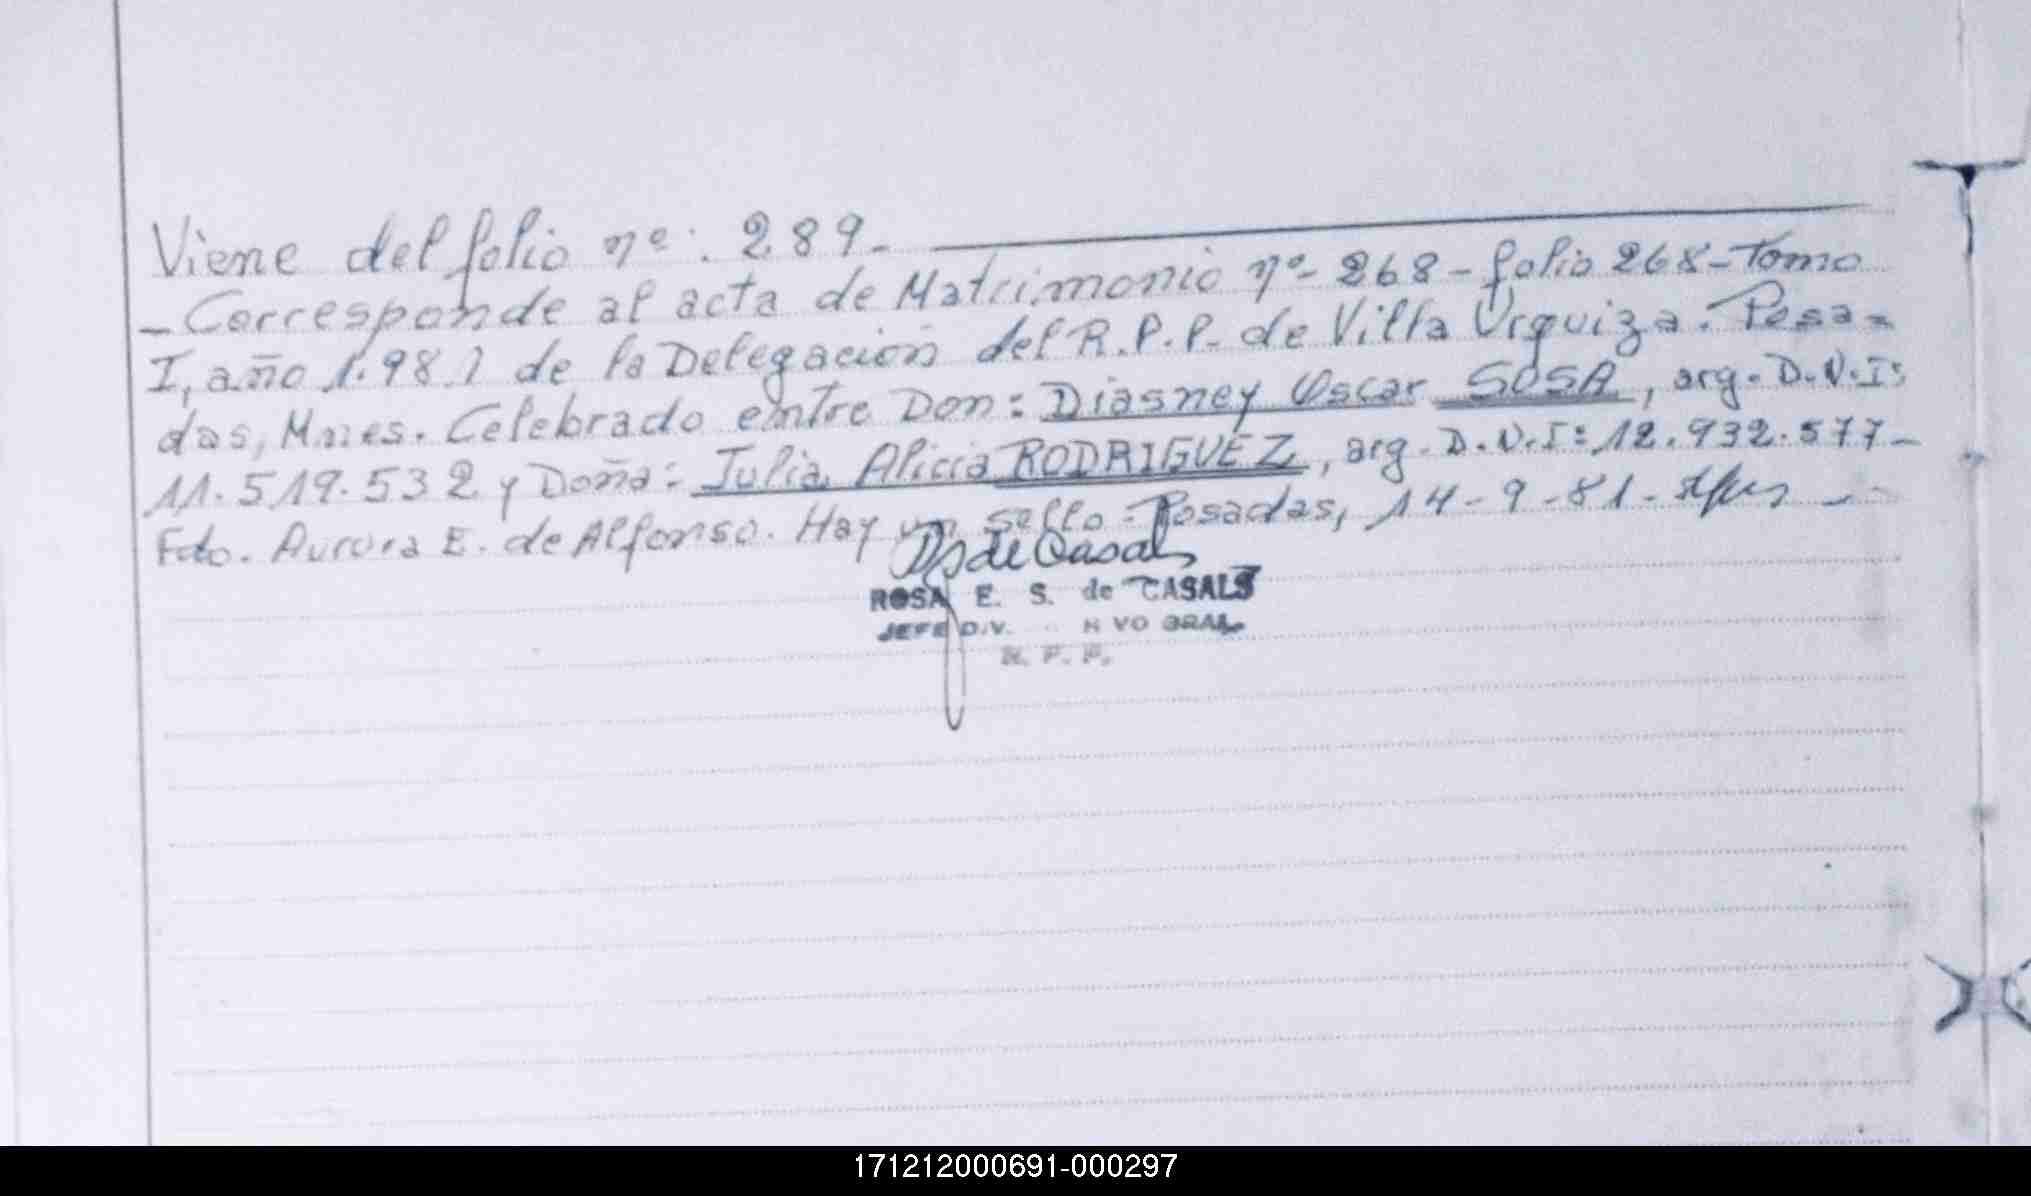 Viene del folio nº: 289-
- Corresponde al acta de Matrimonio nº- 268 - folio 268 - Tomo
I, año 1.981 de la Delegación del R.P.P. de Villa Urquiza. Posa-
das, Mnes. Celebrado entre Don: Diasney Oscar SOSA, arg. D.N.I:
11.519.532 y Doña: Julia Alicia RODRIGUEZ, arg. D.N.I: 12.932.577-
Fdo. Aurora E. de Alfonso. Hay un sello - Posadas, 14-9-81-
RS de Casals
ROSA E. S. de CASALS
JEFE DIV. VO GRAL.
R. P. P.
171212000691-000297